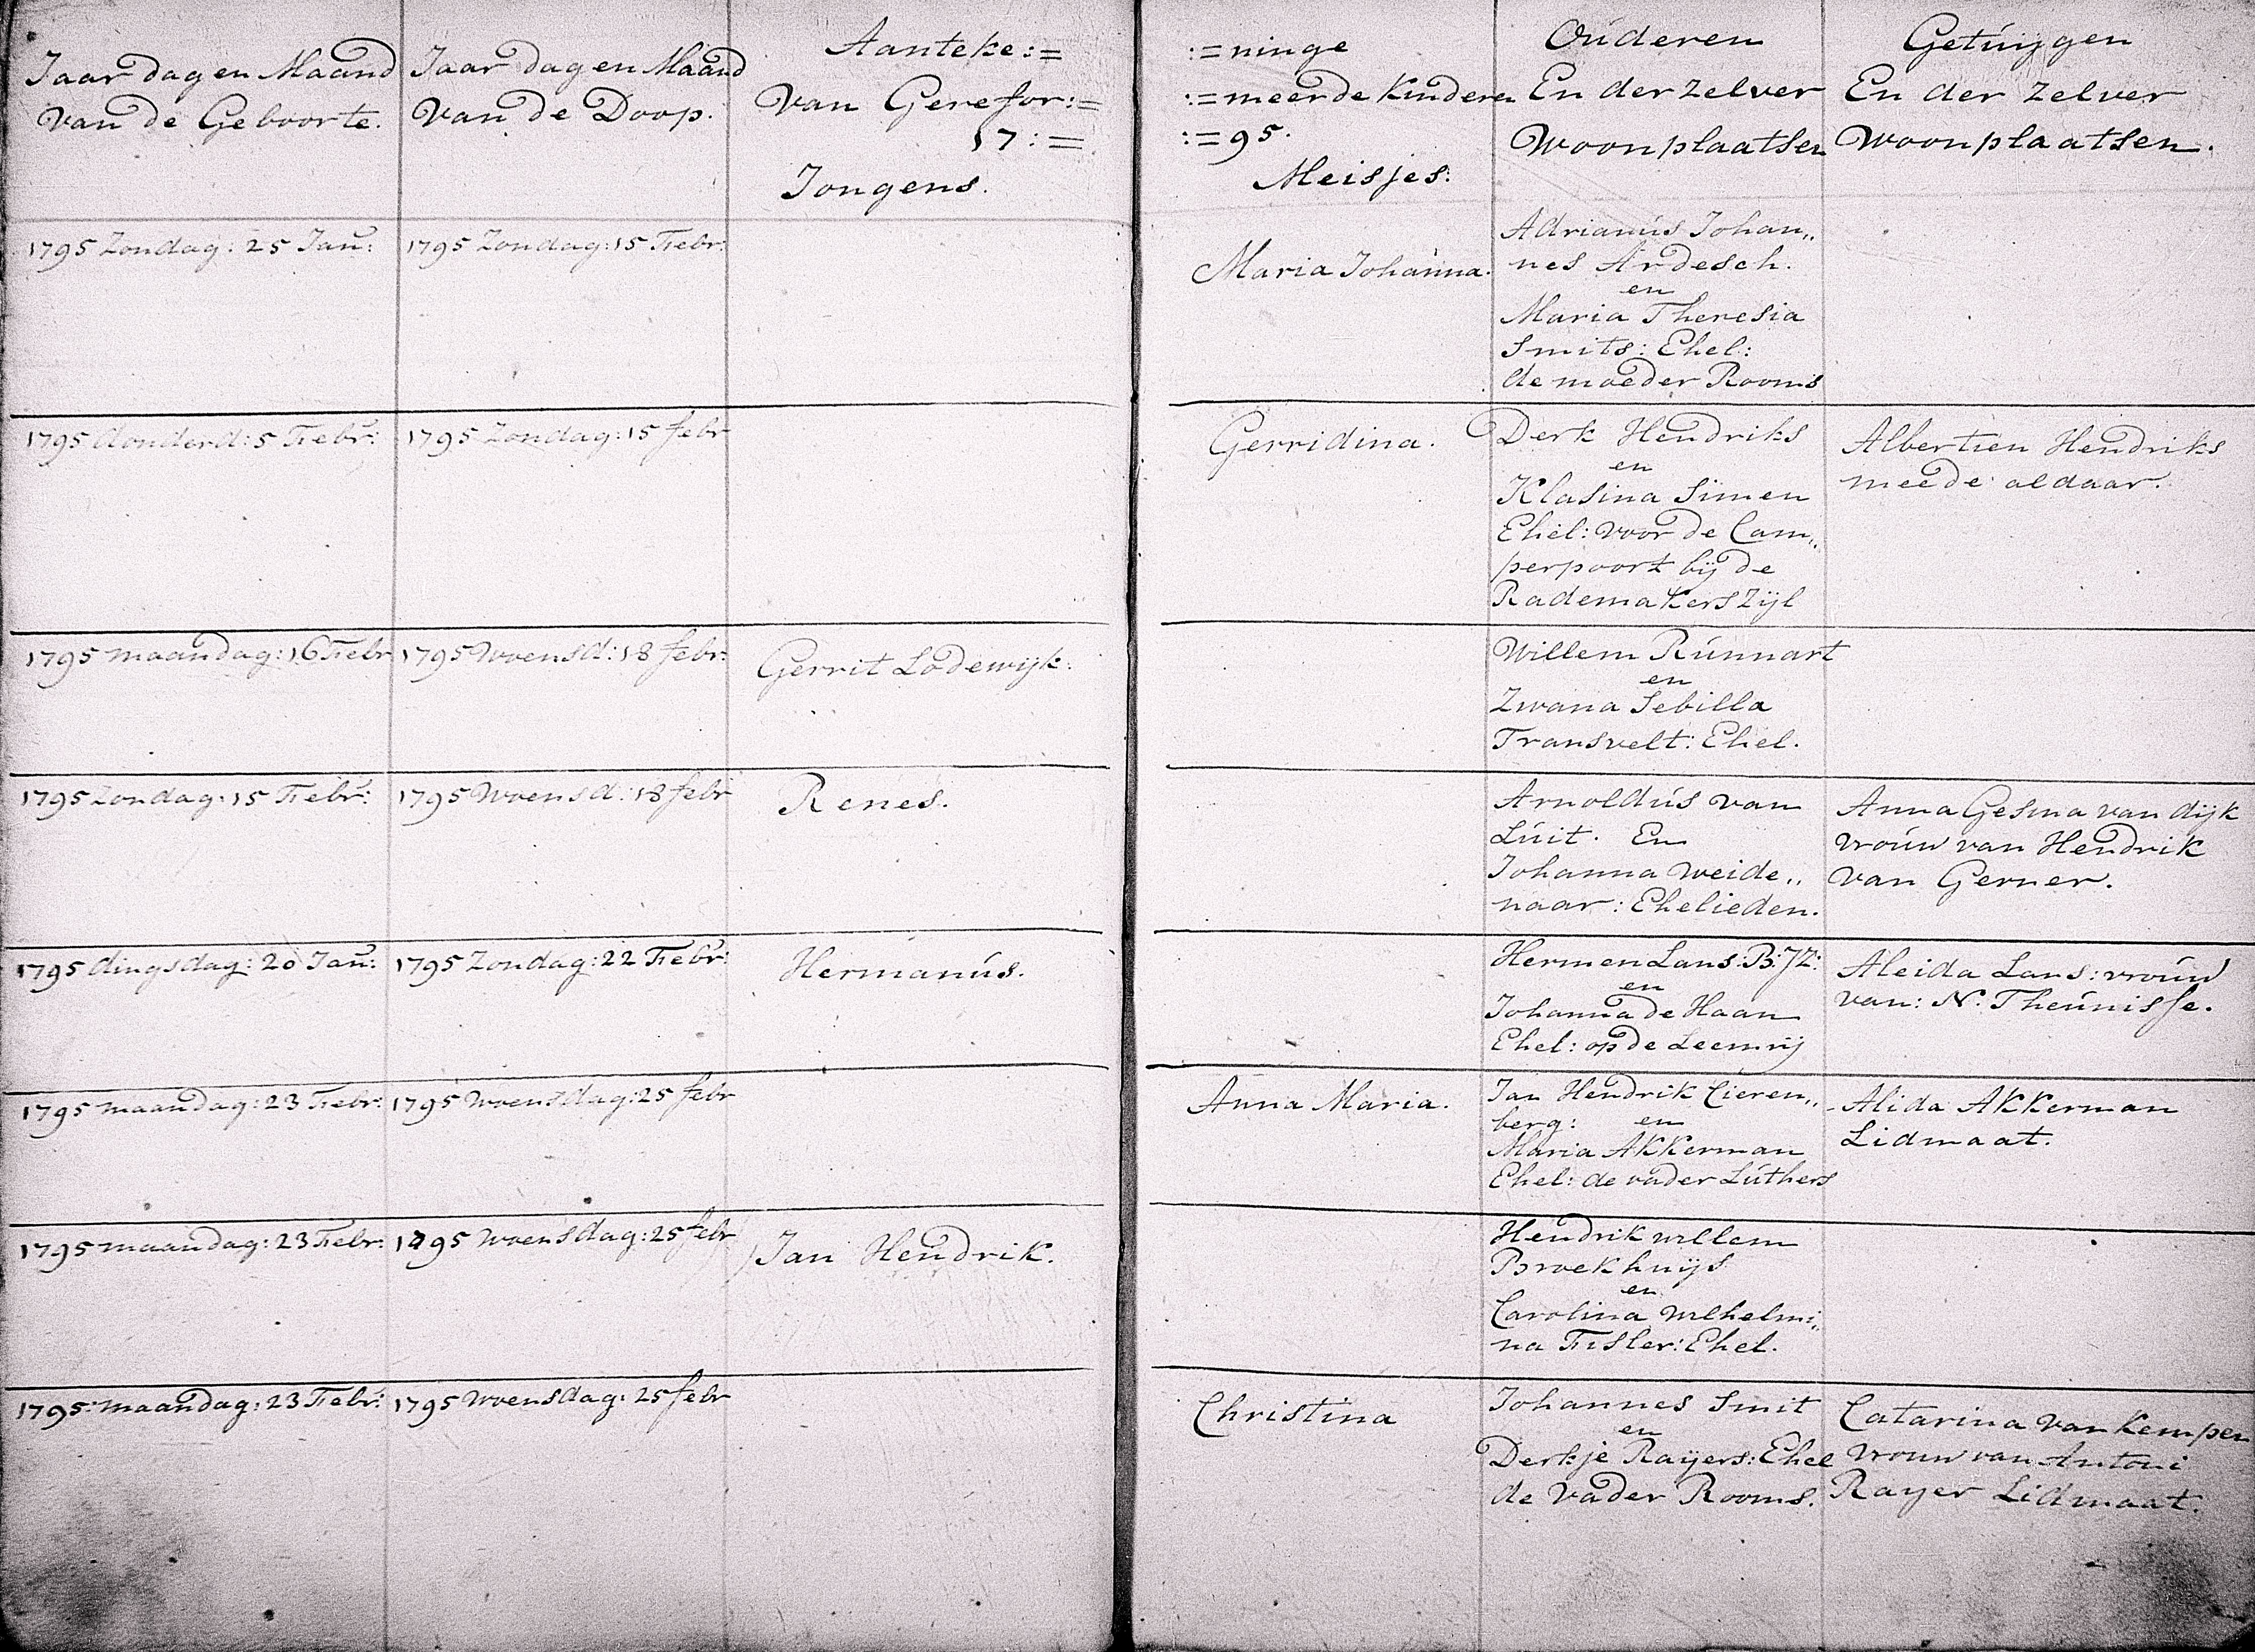 Jaar dag en Maand
van de Geboorte.
Jaar dag en Maand
van de Doop.
Aanteke:=
Van Gerefor:=
17:=
Jongens.
:=ninge
:=meerde Kinderen
:=95.
Meisjes:
Ouderen
En der zelver
Woonplaatsen
Getuijgen
En der zelver
Woonplaatsen.
1795 Zondag: 25 Jan:
1795 Zondag: 15 Febr:
Maria Johanna.
Adrianus Johan,,
nes Ardesch.
en
Maria Theresia
Smits: Ehel:
de moeder Rooms
1795 donderd: 5 Febr:
1795 Zondag: 15 febr
Gerridina.
Derk Hendriks
en
Klasina Simen
Ehel: voor de Cam,,
perpoort bij de
Rademakers Zijl
Albertien Hendriks
meede aldaar.
1795 maandag: 16 Febr
1795 Woensd: 18 febr:
Gerrit Lodewijk.
Willem Runnart
en
Zwana Sebilla
Transvelt: Ehel.
1795 Zondag: 15 Febr:
1795 Woensd: 18 febr
Renes.
Arnoldus van
Luit. En
Johanna Weide,,
naar: Ehelieden.
Anna Gesina van dijk
vrouw van Hendrik
van Gerner.
1795 dingsdag: 20 Jan:
1795 Zondag: 22 Febr:
Hermanus.
Hermen Lans: B: JZ:
en
Johanna de Haan
Ehel: op de Leemrij
Aleida Lans: vrouw
van: N. Theunisse.
1795 maandag: 23 Febr:
1795 Woensdag: 25 febr
Anna Maria.
Jan Hendrik Cieren,,
berg: en
Maria Akkerman
Ehel: de vader Luthers
Alida Akkerman
Lidmaat.
1795 maandag: 23 Febr:
1795 Woensdag: 25 febr
Jan Hendrik.
Hendrik willem
Broekhuijs
en
Carolina Wilhelmi,,
na Fisler: Ehel.
1795 maandag: 23 Febr:
1795 Woensdag: 25 febr
Christina
Johannes Smit
en
Derkje Raijers: Ehel
de Vader Rooms.
Catarina van Kempen
vrouw van Antoni
Rayer Lidmaat.